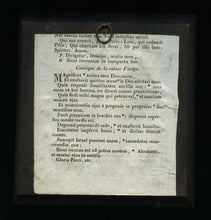 Qui nos creavit,
Filio, Qui charitas
Spiritus. Amen.
℣. Dirigatur, Domine, oratio mea,
℟. Sicut incensum in conspectu tuo.
Cantique de la sainte Vierge.
Magnificat * anima mea Dominum,
Et exultavit spiritus meus * in Deo salutari meo.
Quia respexit humilitatem ancillæ suæ : * ecce
enim ex hoc beatam me dicent omnes generationes.
Quia fecit mihi magna qui potens est : * et sanctum
nomen ejus.
Et misericordia ejus à progenie in progenies * ti-
mentibus eum.
Fecit potentiam in brachio suo : * dispersit super-
bos mente cordis sui.
Deposuit potentes de sede, * et exaltavit humiles.
Esurientes implevit bonis : * et divites dimisit
inanes.
Suscepit Israel puerum suum, * recordatus miseri-
cordiæ suæ.
Sicut locutus est ad patres nostros, * Abraham, et
semini ejus in sæcula.
Gloria Patri, etc.